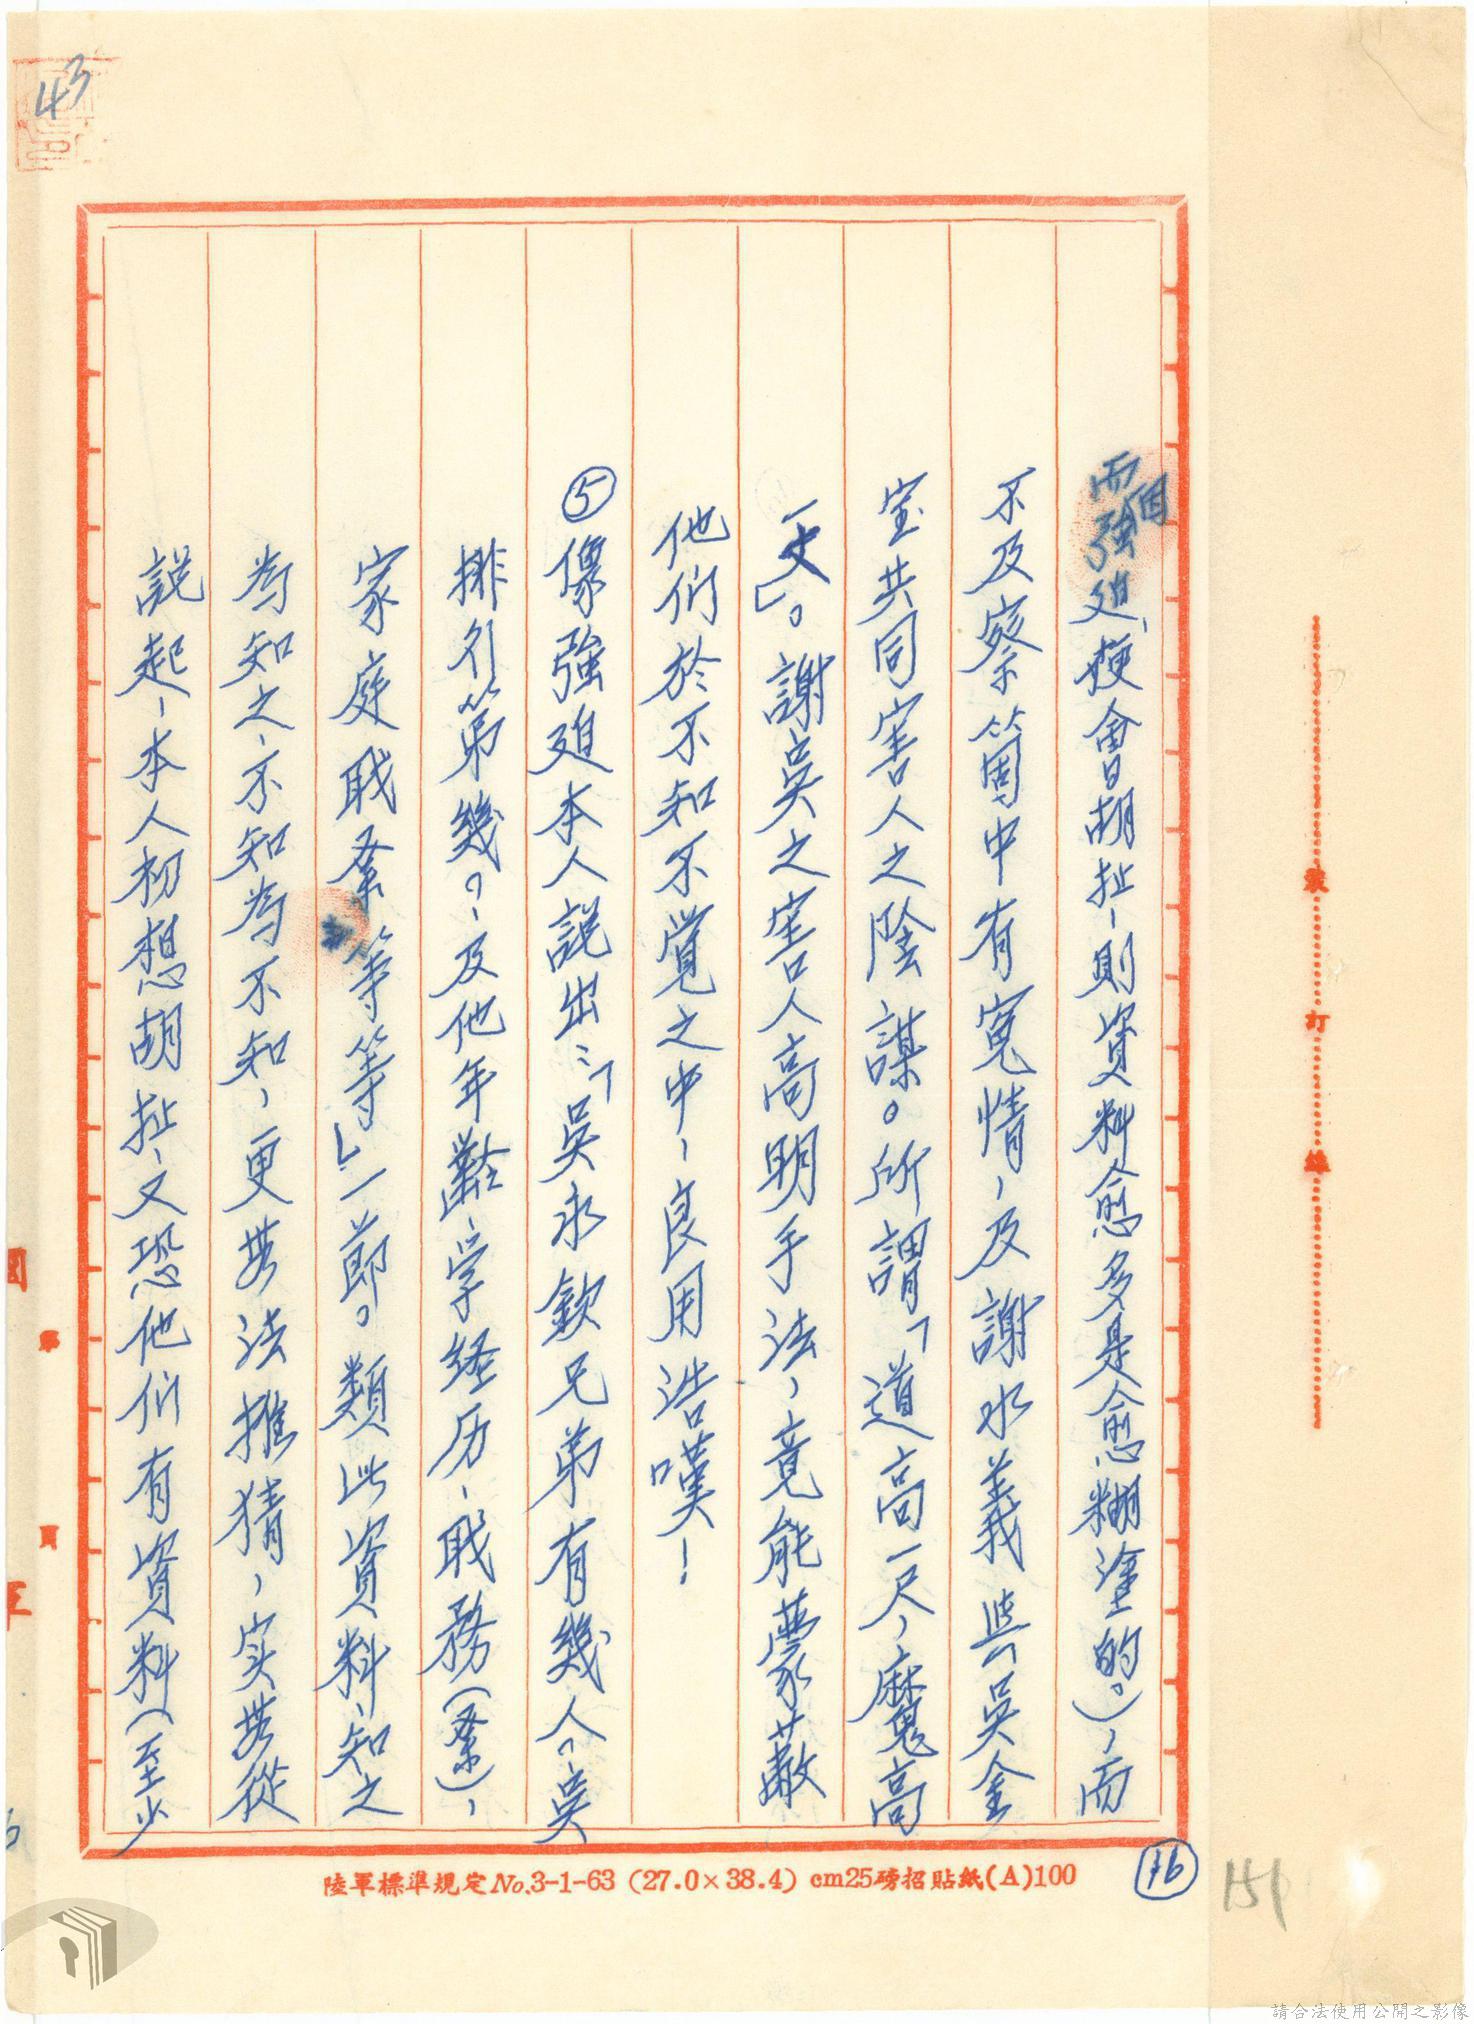 而因強迫，梗會胡扯，則資料愈多是愈糊塗的。），而
不及察箇中有寃情，及謝水義與吳金
宝共同害人之陰謀。所謂「道高一尺，魔高
一丈」。謝吳之害人高明手法，竟能蒙蔽
他們於不知不覺之中，良用浩嘆！
⑤像強迫本人說出：「吳永欽兄弟有幾人。吳
排行第幾。，及他年齡，学経历，职務（系），
家庭职系等等」一節。類此資料，知之
為知之，不知為不知，更無法推猜，实無從
說起，本人初想胡扯，又恐他們有資料（至少
16
151
43
陸軍標準規定No.3-1-63 (27.0×38.4) cm25磅招貼紙(A)100
裝 訂 線
第 頁
請合法使用公開之影像